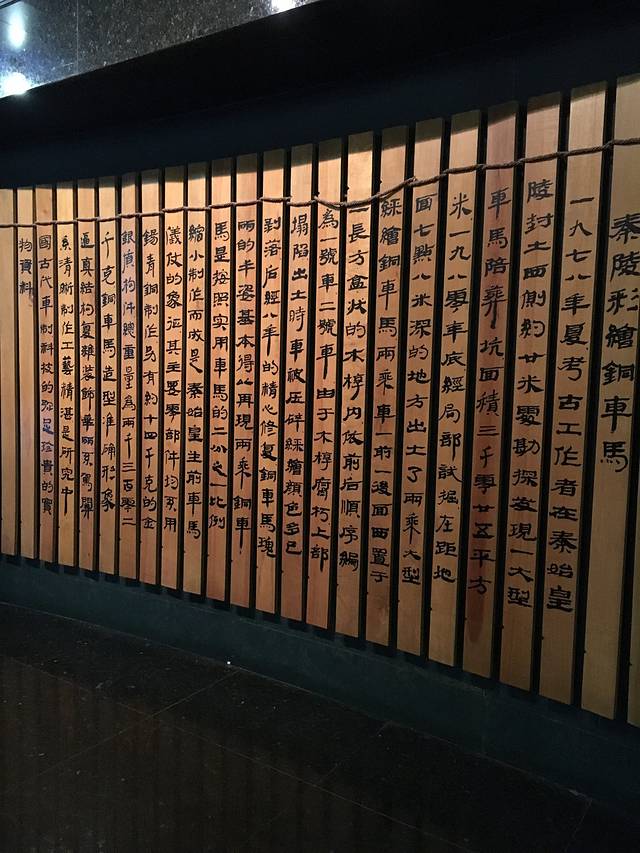 秦陵彩繪銅車馬
一九七八年夏考古工作者在秦始皇
陵封土西側約廿米處勘探发現一大型
車馬陪葬坑面積三千零廿五平方
米一九八零年底經局部試掘在距地
面七點八米深的地方出土了兩乘大型
綵繪銅車馬兩乘車一前一後面西置于
一長方盒状的木椁内依前后順序編
為一號車二號車由于木椁腐朽上部
塌陷出土時車被压碎綵繪顔色多已
剥落后經八年的精心修复銅車馬瑰
丽的丰姿基本得以再現兩乘銅車
馬是按照实用車馬的二分之一比例
縮小制作而成是秦始皇生前車馬
儀仗的象征其主要零部件均系用
錫青銅制作另有約十四千克的金
銀質构件總重量為兩千三百零二
千克銅車馬造型准确形象
逼真结构复雜装飾華丽系駕關
系清晰制作工藝精湛是研究中
國古代車制科技的弥足珍貴的實
物資料